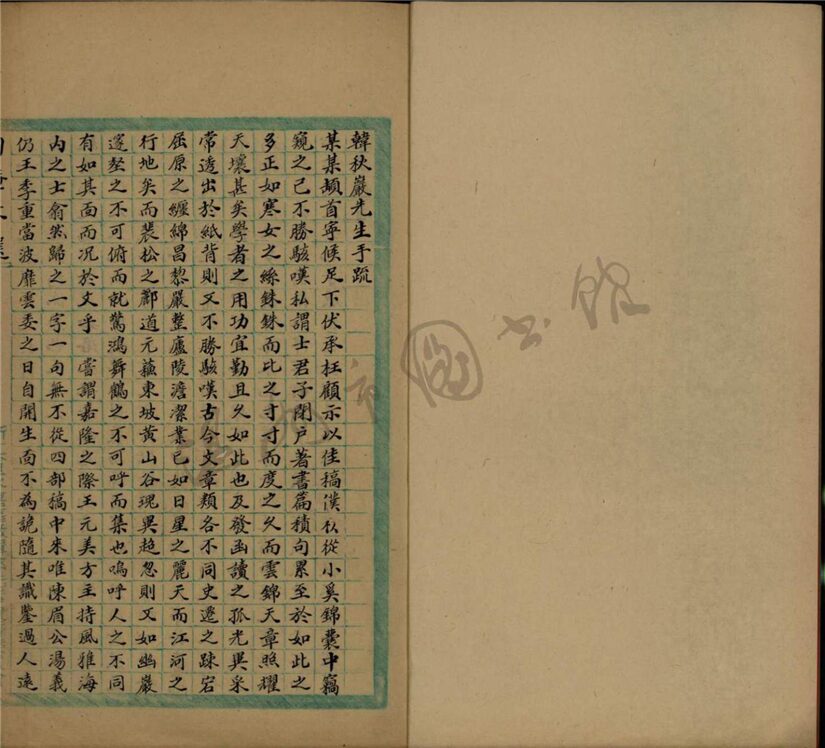 韓秋巖先生手䟽
某某頓首寧候足下伏承枉顧示以佳稿僕從小奚錦囊中竊
窺之已不勝駭嘆私謂士君子閉戶著書篇積句累至於如此之
多正如寒女之絲銖銖而比之寸寸而度之久而雲錦天章照耀
天壤甚矣學者之用功宜勤且久如此也及發函讀之孤光異采
常透出於紙背則又不勝駭嘆古今文章類各不同史遷之踈宕
屈原之纏綿昌黎嚴整廬陵澹潔業已如日星之麗天而江河之
行地矣而裴松之酈道元蘇東坡黃山谷瑰異超忽則又如幽巖
邃壑之不可俯而就驚鴻舞鶴之不可呼而集也嗚呼人之不同
有如其面而况於文乎嘗謂嘉隆之際王元美方主持風雅海
內之士翕然歸之一字一句無不從四部稿中來唯陳眉公湯義
仍王季重當波靡雲委之日自開生面不為詭隨其識鑒過人遠
市圖书馆